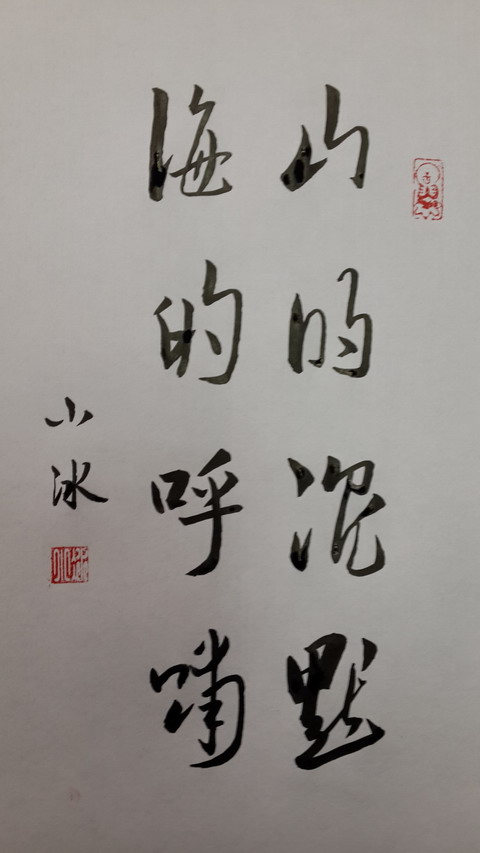 山的沉默
海的呼啸
小冰